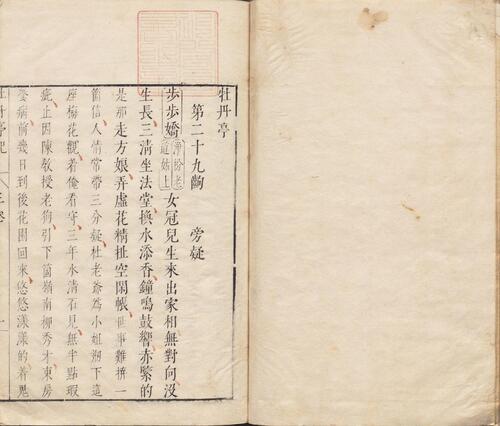 牡丹亭
第二十九齣　旁疑
步步嬌淨扮老道姑上女冠兒生來出家相無對向沒
生長三清坐法堂換水添香鐘鳴鼓響赤緊的
是那走方娘弄虛花精扯空閑帳世事難拚一
箇信人情常帶三分疑杜老爺爲小姐剏下這
座梅花觀着俺看守三年水清石見無半點瑕
疵止因陳教授老狗引下箇嶺南柳秀才東房
養病前幾日到後花園回來悠悠漾漾的着鬼
牡丹亭記　三卷　一